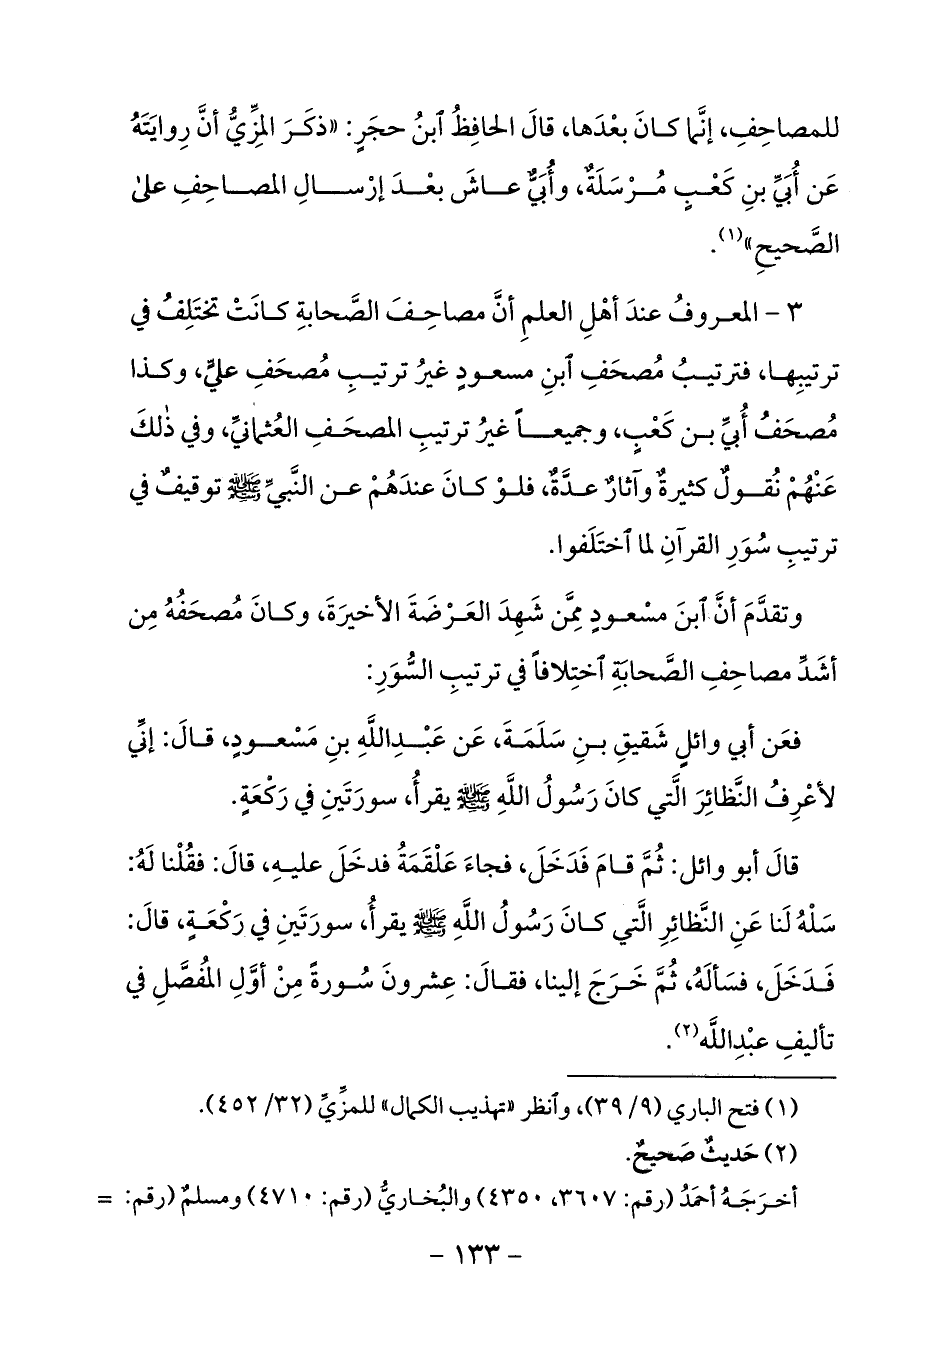 للمصاحِفِ، إنَّما كـانَ بعْدَها، قالَ الحافِظُ ٱبنُ حجَرٍ: «ذكَـرَ المِزِّيُّ أنَّ رِوايَتَهُ
عَن أُبَيِّ بنِ كَعْـبٍ مُـرْسَلَةٌ، وأُبَيٌّ عـاشَ بعْـدَ إرْسـالِ المصـاحِفِ علىٰ
الصَّحيحِ»(١).
٣ – المعـروفُ عندَ أهْلِ العلمِ أنَّ مصاحِـفَ الصَّحابةِ كـانَتْ تختَلِفُ في
ترتيبِهـا، فترتيـبُ مُصحَفِ ٱبنِ مسعـودٍ غيرُ ترتيـبِ مُصحَفِ عليٍّ، وكـذا
مُصحَفُ أُبيِّ بـن كَعْبٍ، وجميعـاً غيرُ ترتيبِ المصحَـفِ العُثمانيِّ، وفي ذٰلكَ
عَنْهُمْ نُقـولٌ كثيرةٌ وآثارٌ عـدَّةٌ، فلـوْ كـانَ عندَهُمْ عـن النَّبيِّ ﷺ توقيفٌ في
ترتيبِ سُوَرِ القرآنِ لما ٱختَلَفوا.
وتقدَّمَ أنَّ ٱبنَ مسْعـودٍ ممَّن شَهِدَ العَـرْضَةَ الأخيرَةَ، وكـانَ مُصحَفُهُ مِن
أشَدِّ مصاحِفِ الصَّحابَةِ ٱختِلافاً في ترتيبِ السُّوَرِ:
فعَن أبي وائلٍ شَقيقِ بـنِ سَلَمَـةَ، عَن عَبْـدِاللَّهِ بنِ مَسْعـودٍ، قـالَ: إنِّي
لأعْرِفُ النَّظائِرَ الَّتي كانَ رَسُولُ اللَّهِ ﷺ يقرأُ، سورَتَينِ في رَكْعَةٍ.
قالَ أبو وائل: ثُمَّ قـامَ فَدَخَلَ، فجاءَ عَلْقَمَةُ فدخَلَ عليـهِ، قالَ: فقُلْنا لَهُ:
سَلْهُ لَنا عَنِ النَّظائِرِ الَّتي كـانَ رَسُولُ اللَّهِ ﷺ يقرأُ، سورَتَينِ في رَكْعَـةٍ، قالَ:
فَـدَخَلَ، فسَألَهُ، ثُمَّ خَـرَجَ إلينا، فقـالَ: عِشرونَ سُـورةً مِنْ أوَّلِ المُفصَّلِ في
تأليفِ عبْدِاللَّه(٢).
(١) فتح الباري (٩/ ٣٩)، وٱنظر «تهذيب الكمال» للمزِّيِّ (٣٢/ ٤٥٢).
(٢) حَديثٌ صَحيحٌ.
أخـرَجَـهُ أحمَدُ (رقم: ٣٦٠٧، ٤٣٥٠) والبُخـاريُّ (رقم: ٤٧١٠) ومسلمٌ (رقم: =
– ١٣٣ –